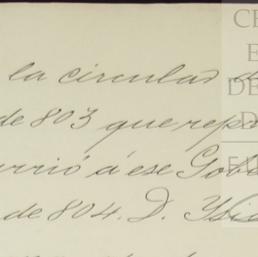 la circular
de 803 que rep
urrió á ese Gob
de 804. D. Ysi